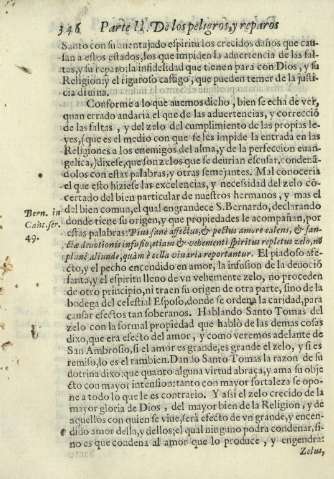 346 Parte II. De los peligros, y reparos
Santo con su auentajado espiritu los crecidos daños que cau-
san a estos estados, los que impiden la aduertencia de las fal-
tas, y su reparo; la infidelidad que tienen para con Dios, y su
Religion; y el riguroso castigo, que pueden temer de la justi-
cia diuina.
Conforme a lo que auemos dicho, bien se echa de ver,
quan errado andaria el que de las aduertencias, y correcciō
de las faltas, y del zelo del cumplimiento de las propias le-
yes, (que es el medio con que se les impide la entrada en las
Religiones a los enemigos del alma, y de la perfeccion euan-
gelica,) dixese, que son zelos que se deurian escusar, condenā-
dolos con estas palabras, y otras semejantes. Mal conoceria
el que esto hiziese las excelencias, y necesidad del zelo con-
certado del bien particular de nuestros hermanos, y mas el
del bien comun, el qual engrandece S. Bernardo, declarando
donde tiene su origen, y que propiedades le acompañan, por
estas palabras: Pius sane affectus, & pectus amore calens, & san-
ctæ deuotionis infusio, etiam & vehementi spiritus repletus zelo, nō
plane aliunde, quàm è cella vinaria reportantur. El piadoso afe-
cto, y el pecho encendido en amor, la infusion de la deuociō
santa, y el espiritu lleno de vn vehemente zelo, no proceden
de otro principio, ni traen su origen de otra parte, sino de la
bodega del celestial Esposo, donde se ordena la caridad, para
causar efectos tan soberanos. Hablando Santo Tomas del
zelo con la formal propiedad que habló de las demas cosas
dixo, que era efecto del amor, y como veremos adelante de
San Ambrosio, si el amor es grande, es grande el zelo, y si es
remiso, lo es el tambien. Dando Santo Tomas la razon de su
dotrina dixo: que quanto alguna virtud abraça, y ama su obje
cto con mayor intension: tanto con mayor fortaleza se opo-
ne a todo lo que le es contrario. Y assi el zelo crecido de la
mayor gloria de Dios, del mayor bien de la Religion, y de
aquellos con quien se viue, será efecto de vn grande, y encen-
dido amor della, y dellos; el qual ninguno podra condenar, si-
no es que condena al amor que lo produce, y engendra:
Zelus,
Bern. in
Cant. ser.
49.